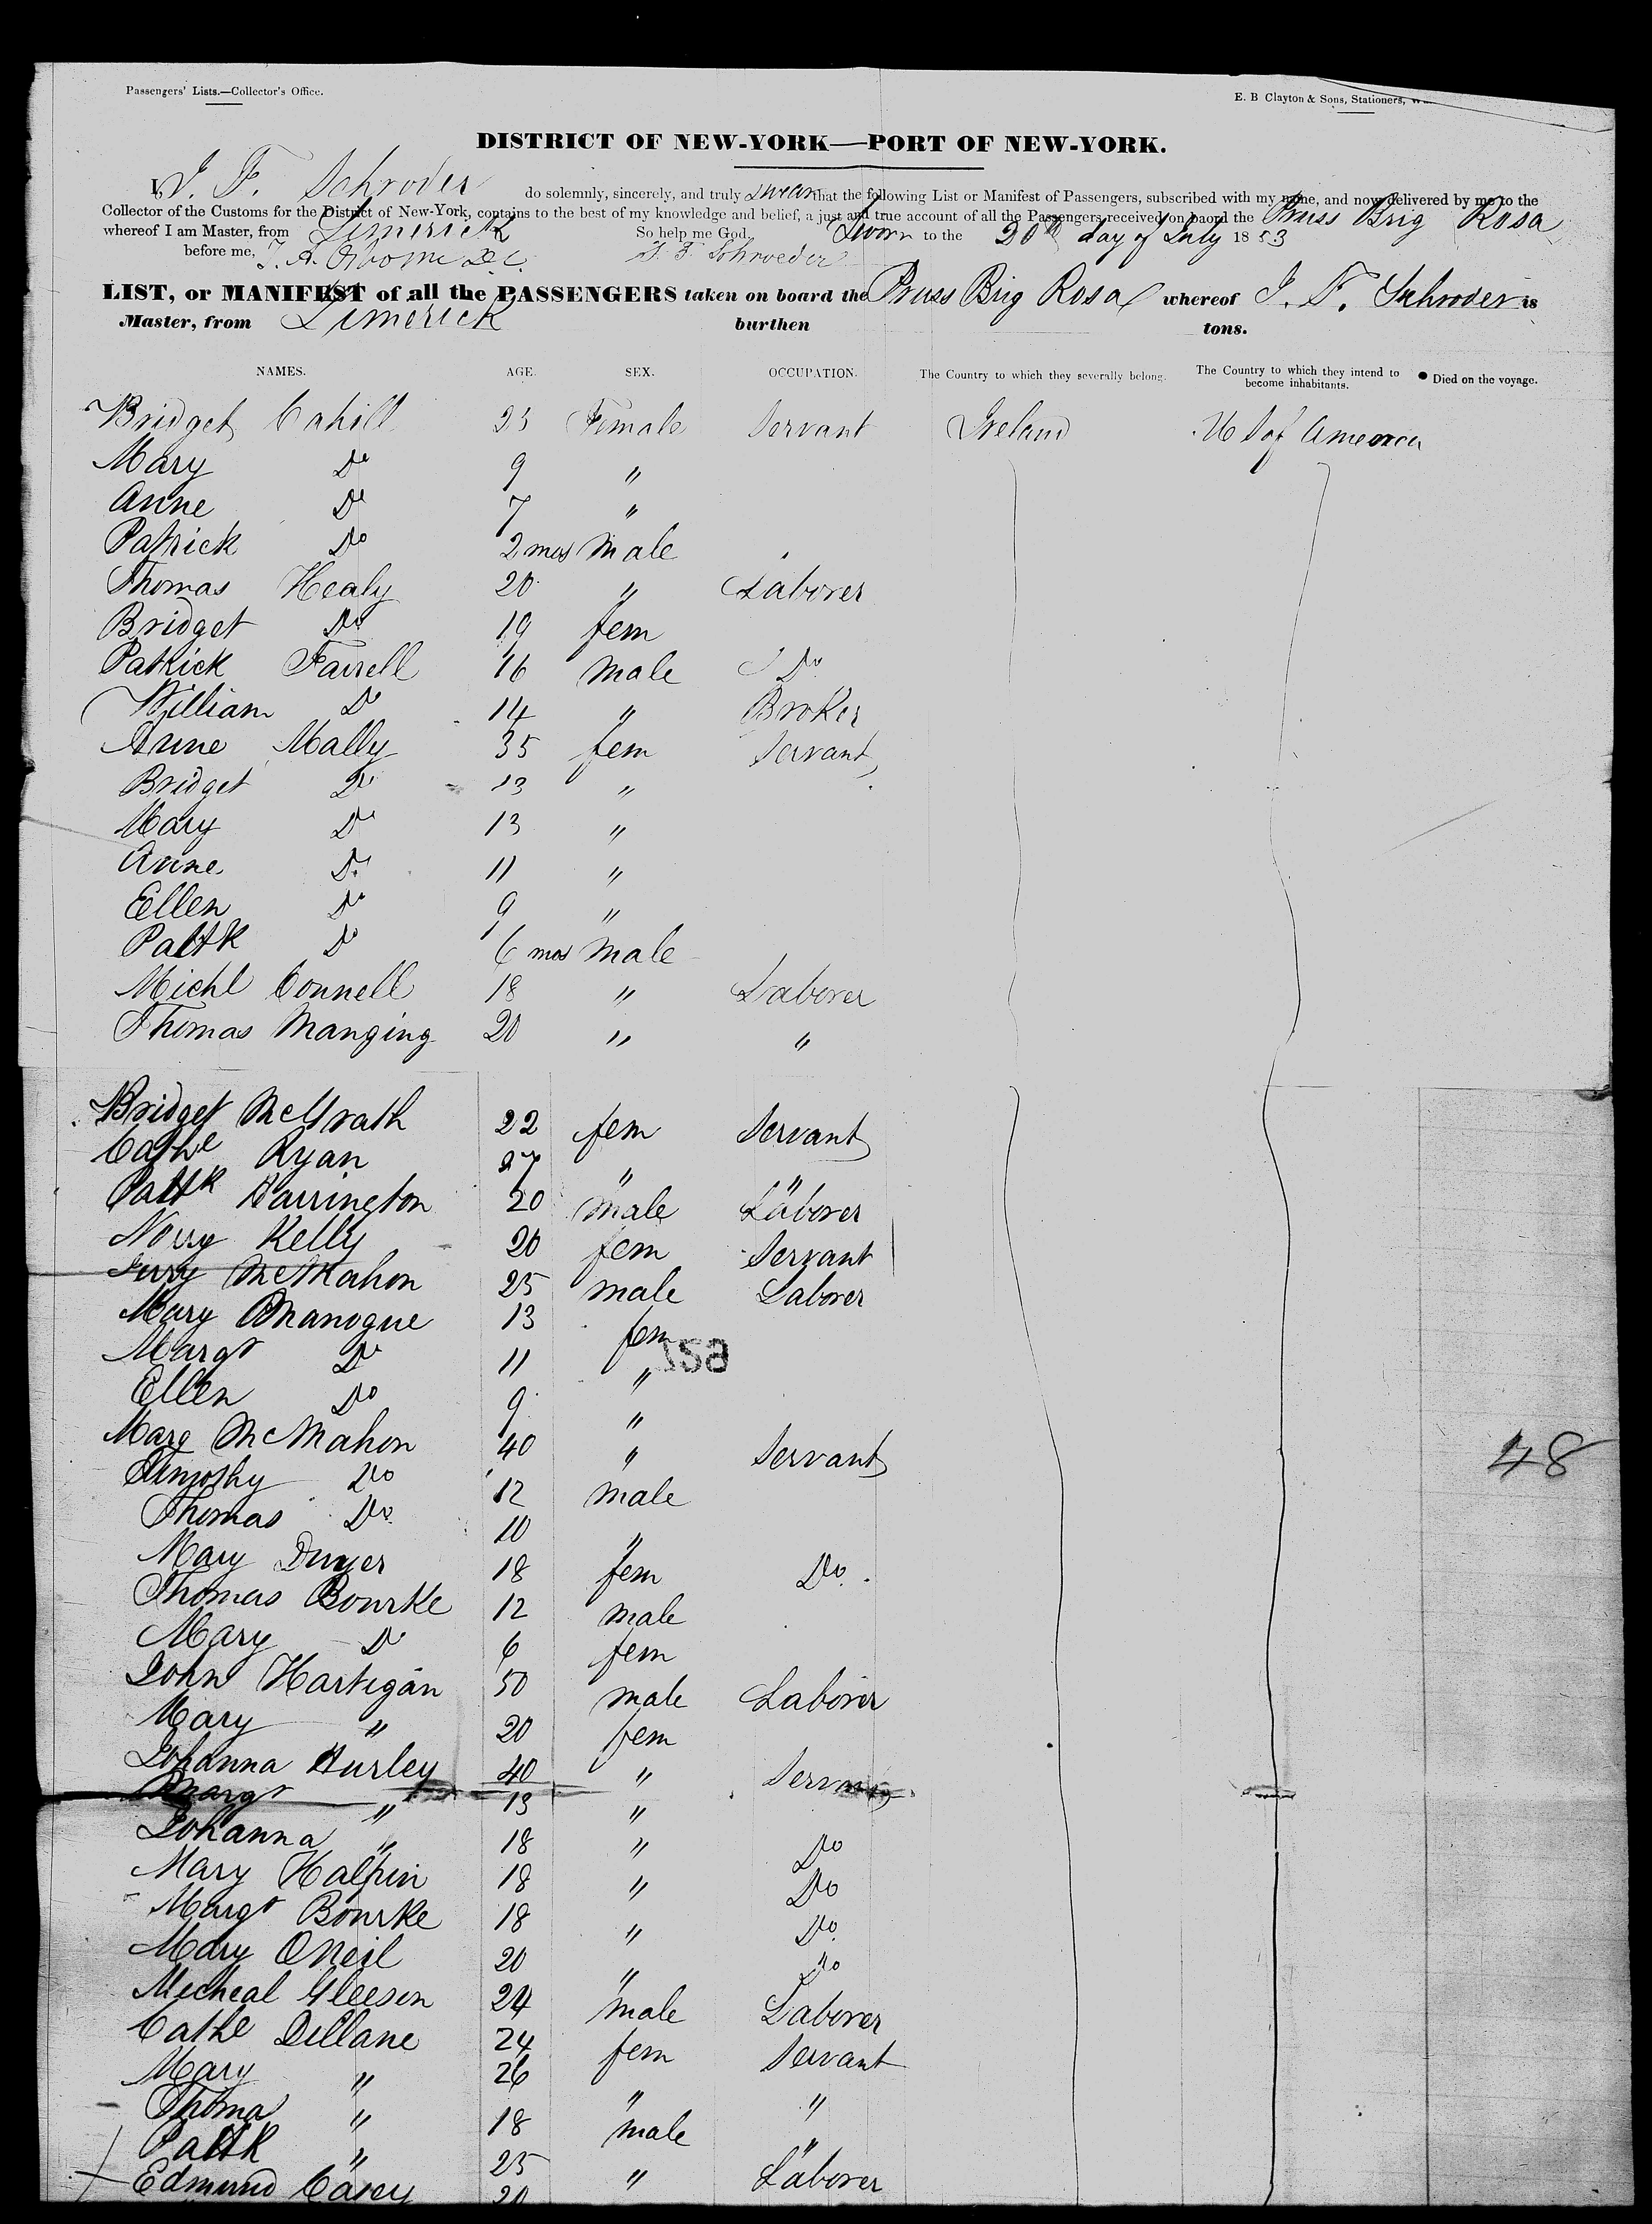 Passengers' Lists.—Collector's Office.
E. B Clayton & Sons, Stationers,
DISTRICT OF NEW-YORK—PORT OF NEW-YORK.
I, J. F. Schroder do solemnly, sincerely, and truly swear that the following List or Manifest of Passengers, subscribed with my name, and now delivered by me to the
Collector of the Customs for the District of New-York, contains to the best of my knowledge and belief, a just and true account of all the Passengers received on baord the Pruss Brig Rosa
whereof I am Master, from Limerick So help me God. Sworn to the 20th day of July 1853
before me, J. F. Schroeder
LIST, or MANIFEST of all the PASSENGERS taken on board the Pruss Brig Rosa whereof J. F. Schroder is
Master, from Limerick burthen tons.
NAMES. AGE. SEX. OCCUPATION. The Country to which they severally belong. The Country to which they intend to become inhabitants. Died on the voyage.
Bridget Cahill 23 Female Servant Ireland U S of America
Mary Do 9 "
Anne Do 7 "
Patrick Do 2 mos male
Thomas Healy 20 " Laborer
Bridget Do 19 fem
Patrick Farrell 16 male Do
William Do 14 " Broker
Anne Mally 35 fem Servant
Bridget Do 13 "
Mary Do 13 "
Anne Do 11 "
Ellen Do 9 "
Pattk Do 6 mos male
Michl Connell 18 " Laborer
Thomas Manging 20 " "
Bridget McGrath 22 fem Servant
Cathe Ryan 27 " "
Pattk Harrington 20 male Laborer
Norry Kelly 20 fem Servant
Jerry McMahon 25 male Laborer
Mary Manogue 13 fem
Margt Do 11 "
Ellen Do 9 "
Marg McMahon 40 " Servant
48
Timothy Do 12 male
Thomas Do 10 "
Mary Dwyer 18 fem Do
Thomas Bourke 12 male
Mary Do 6 fem
John Hartigan 50 male Laborer
Mary " 20 fem
Johanna Hurley 40 " Servant
Margt " 13 "
Johanna " 18 " Do
Mary Halpin 18 " Do
Margt Bourke 18 " Do
Mary ONeil 20 " Do
Micheal Gleeson 24 male Laborer
Cathe Dillane 24 fem Servant
Mary " 26 " "
Thoma " 18 male "
Pattk " 25 " Laborer
Edmund Casey 20